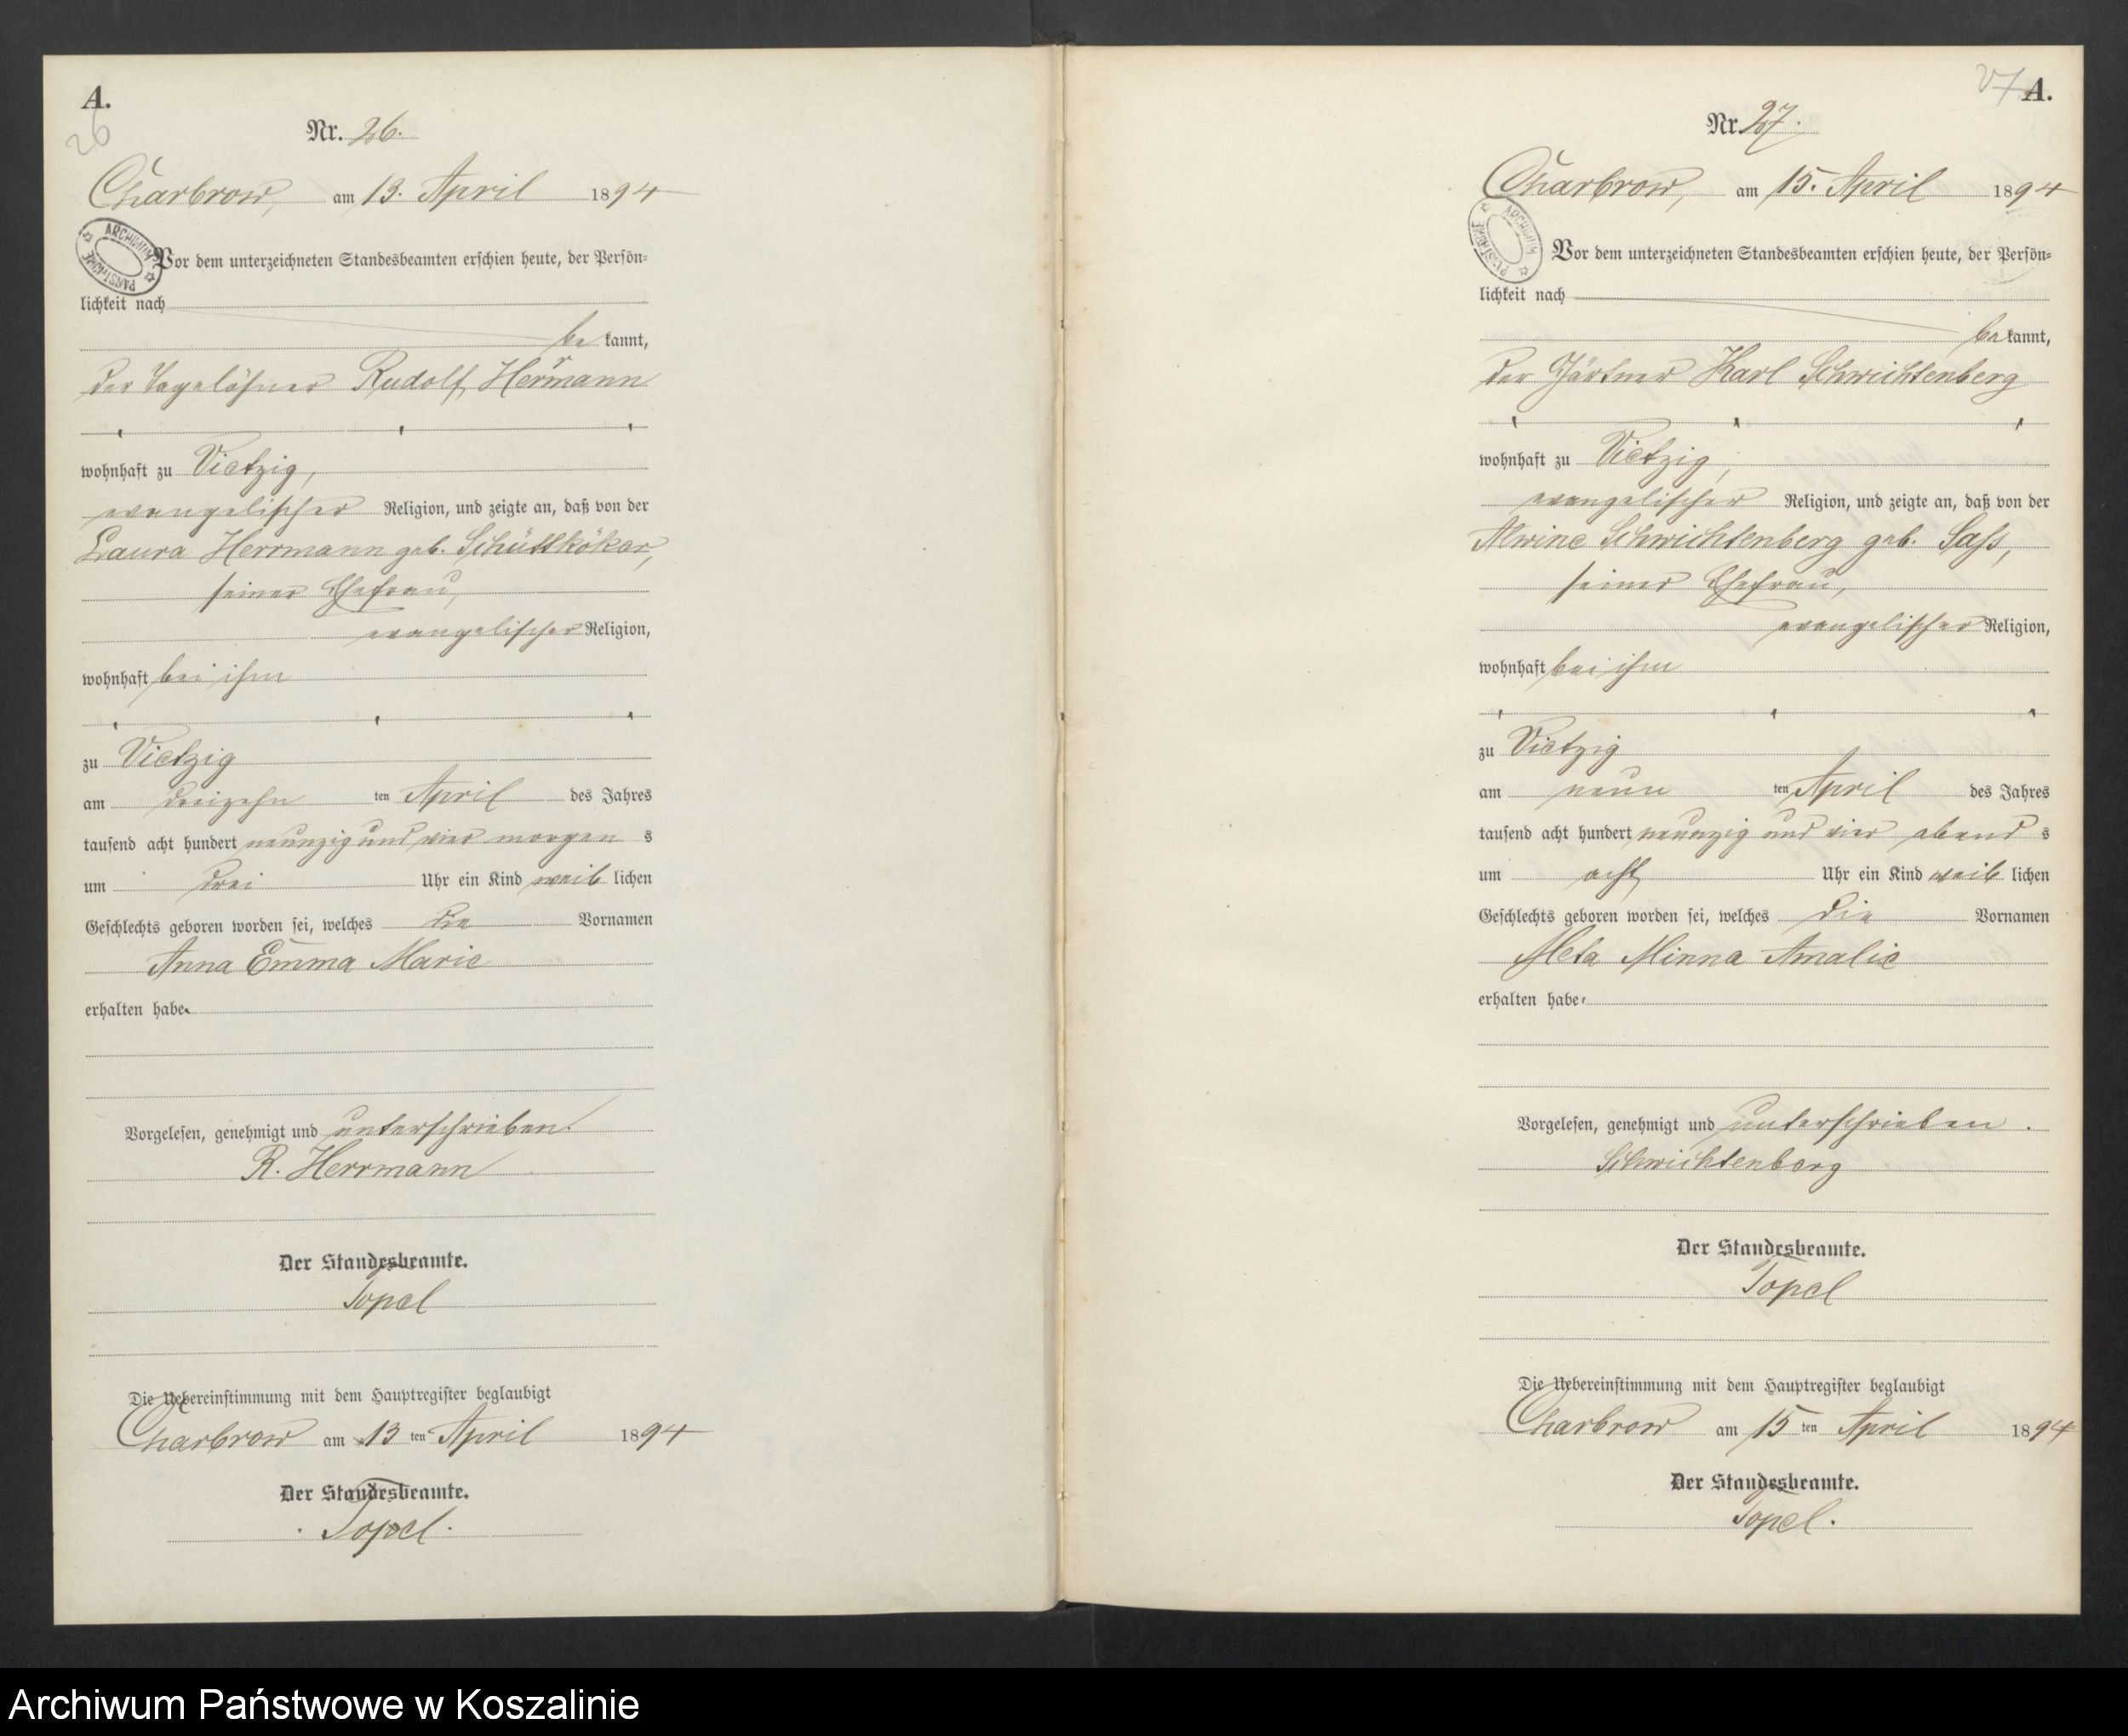 A.
26
Nr. 26.
Charbrow, am 13. April 1894
ARCHIWUM PAŃSTWOWE
Vor dem unterzeichneten Standesbeamten erschien heute, der Persön=
lichkeit nach
be kannt,
der Tagelöhner Rudolf Herrmann
wohnhaft zu Vietzig,
evangelischer Religion, und zeigte an, daß von der
Laura Herrmann geb. Schüttköker,
seiner Ehefrau,
evangelischer Religion,
wohnhaft bei ihm
zu Vietzig
am dreizehn ten April des Jahres
tausend acht hundert neunzig und vier morgen s
um drei Uhr ein Kind weib lichen
Geschlechts geboren worden sei, welches die Vornamen
Anna Emma Marie
erhalten habe.
Vorgelesen, genehmigt und unterschrieben.
R. Herrmann
Der Standesbeamte.
Topel
Die Uebereinstimmung mit dem Hauptregister beglaubigt
Charbrow am 13 ten April 1894
Der Standesbeamte.
Topel.
27 A.
Nr. 27.
Charbrow, am 15. April 1894
ARCHIWUM PAŃSTWOWE
Vor dem unterzeichneten Standesbeamten erschien heute, der Persön=
lichkeit nach
be kannt,
der Gärtner Karl Schwichtenberg
wohnhaft zu Vietzig,
evangelischer Religion, und zeigte an, daß von der
Alwine Schwichtenberg geb. Sass,
seiner Ehefrau,
evangelischer Religion,
wohnhaft bei ihm
zu Vietzig
am neun ten April des Jahres
tausend acht hundert neunzig und vier abend s
um acht Uhr ein Kind weib lichen
Geschlechts geboren worden sei, welches die Vornamen
Meta Minna Amalie
erhalten habe.
Vorgelesen, genehmigt und unterschrieben.
Schwichtenberg
Der Standesbeamte.
Topel
Die Uebereinstimmung mit dem Hauptregister beglaubigt
Charbrow am 15 ten April 1894
Der Standesbeamte.
Topel.
Archiwum Państwowe w Koszalinie